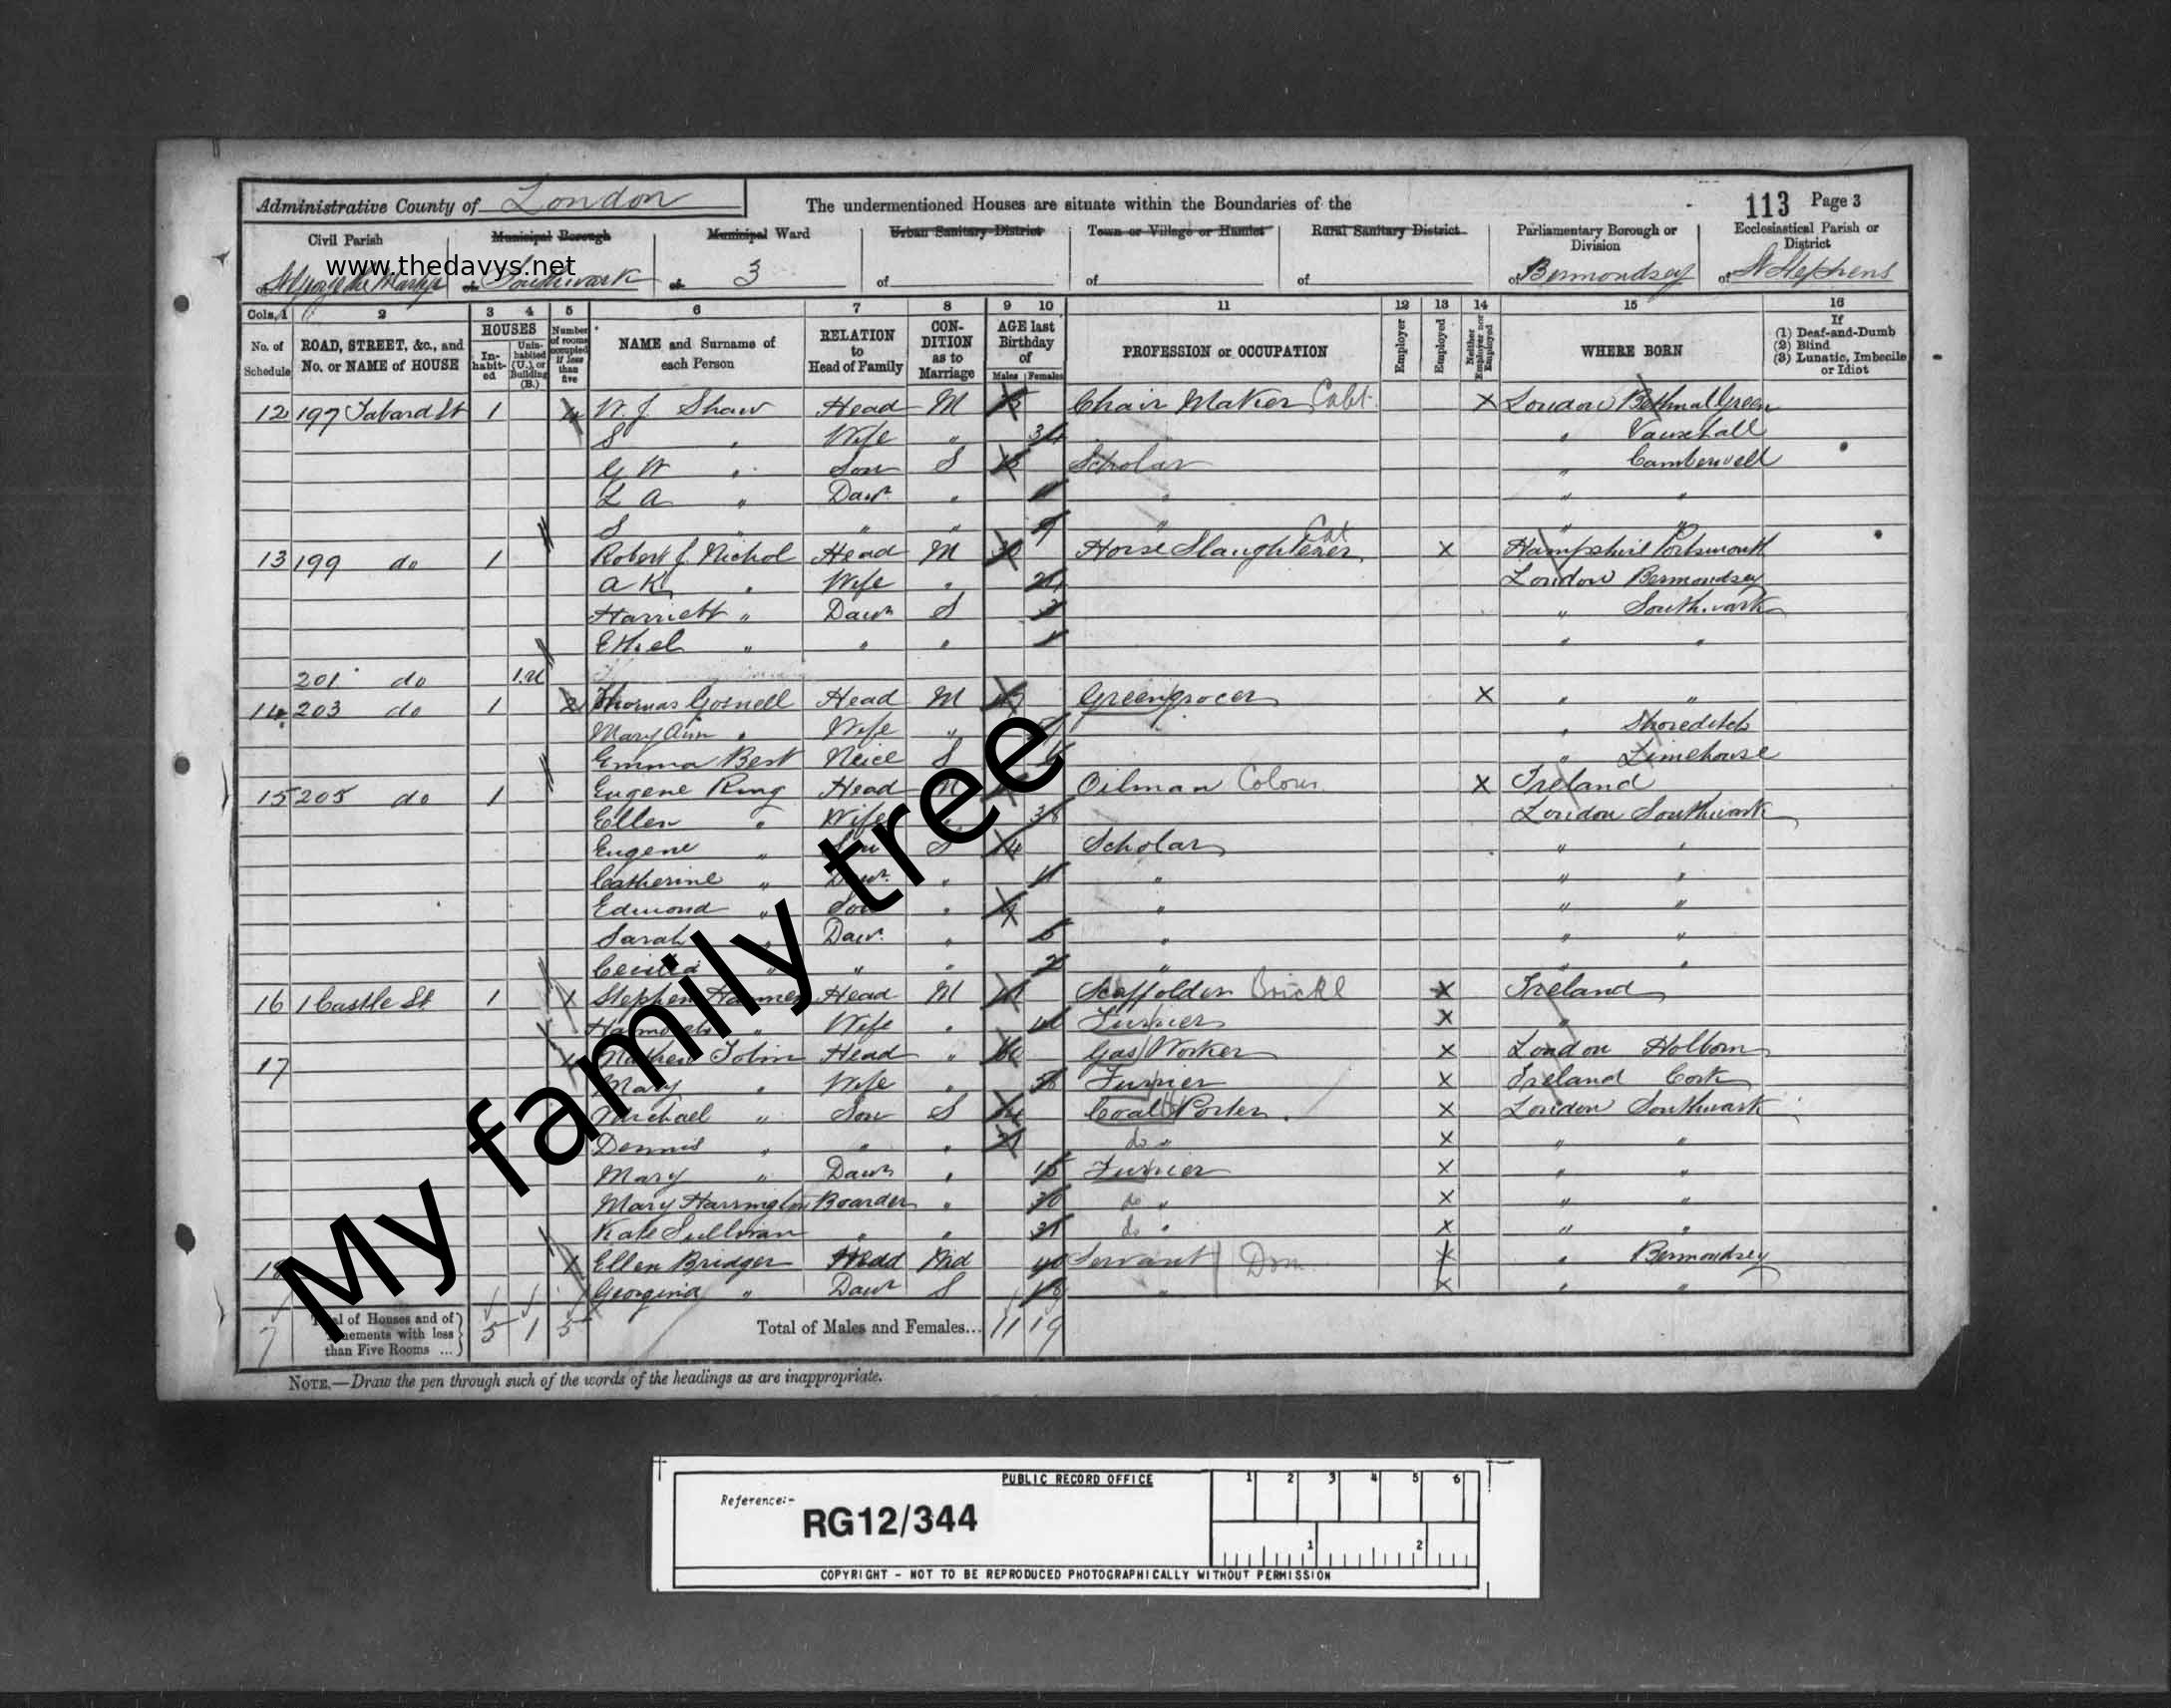 Administrative County of London
The undermentioned Houses are situate within the Boundaries of the
113 Page 3
Civil Parish
Municipal Borough
Municipal Ward
Urban Sanitary District
Town or Village or Hamlet
Rural Sanitary District
Parliamentary Borough or Division
Ecclesiastical Parish or District
www.thedavys.net
of St George the Martyr
of Southwark
of 3
of
of
of
of Bermondsey
of St Stephens
Cols. 1 2 3 4 5 6 7 8 9 10 11 12 13 14 15 16
No. of Schedule
ROAD, STREET, &c., and No. or NAME of HOUSE
HOUSES
In-habit-ed
Unin-habited (U.), or Building (B.)
Number of rooms occupied if less than five
NAME and Surname of each Person
RELATION to Head of Family
CON-DITION as to Marriage
AGE last Birthday of
Males Females
PROFESSION or OCCUPATION
Employer
Employed
Neither Employer nor Employed
WHERE BORN
If
(1) Deaf-and-Dumb
(2) Blind
(3) Lunatic, Imbecile or Idiot
12 197 Tabard St 1 4 W. J. Shaw Head M Chair Maker Cabt. X London Bethnal Green
S " Wife " 34 " Vauxhall
G W " Son S 13 Scholar " Camberwell
L A " Daur. " 11 " " "
S " " " 9 " " "
13 199 do 1 Robert J. Nichol Head M Horse Slaughterer Cat X Hampshire Portsmouth
A K " Wife " London Bermondsey
Harriett " Daur S " Southwark
Ethel " " " 1 " "
201 do 1.U
14 203 do 1 2 Thomas Gosnell Head M Greengrocer X " "
Mary Ann " Wife " " Shoreditch
Emma Best Neice S " Limehouse
15 205 do 1 Eugene Ring Head M Oilman Colour X Ireland
Ellen " Wife " 38 London Southwark
Eugene " Son S 14 Scholar " "
Catherine " Daur. " 11 " " "
Edmond " Son " " " "
Sarah " Daur. " 5 " " "
Cecilia " " " 2 " " "
16 1 Castle St 1 1 Stephen Head M Scaffolder Brickl X Ireland
" Wife " Furrier X "
17 4 Mathew Tobin Head " 60 Gas Worker X London Holborn
Mary " Wife " Furrier X Ireland Cork
Michael " Son S Coal Porter X London Southwark
Dennis " " " 21 do " X " "
Mary " Daur " Furrier X " "
Mary Harrington Boarder " 30 do " X " "
Kate Sullivan " " do " X " "
18 1 Ellen Bridger Head Wid 40 Servant Dom X " Bermondsey
Georgina " Daur S 18 " X " "
7
Total of Houses and of Tenements with less than Five Rooms ...
5 1 5
Total of Males and Females... 11 19
NOTE.—Draw the pen through such of the words of the headings as are inappropriate.
My family tree
PUBLIC RECORD OFFICE
1 2 3 4 5 6
Reference:-
RG12/344
1 2
COPYRIGHT - NOT TO BE REPRODUCED PHOTOGRAPHICALLY WITHOUT PERMISSION